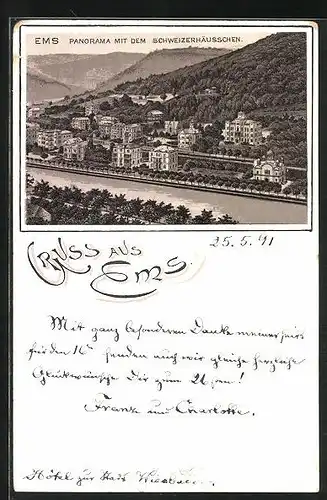 EMS PANORAMA MIT DEM SCHWEIZERHÄUSSCHEN.
GRUSS AUS
EMS.
25. 5. 91
Mit ganz besonderen Danke meinerseits
für den senden auch wir gleiche herzliche
Glückwünsche Dir zum
Franz und Charlotte.
Hôtel zur Stadt Wiesbaden.